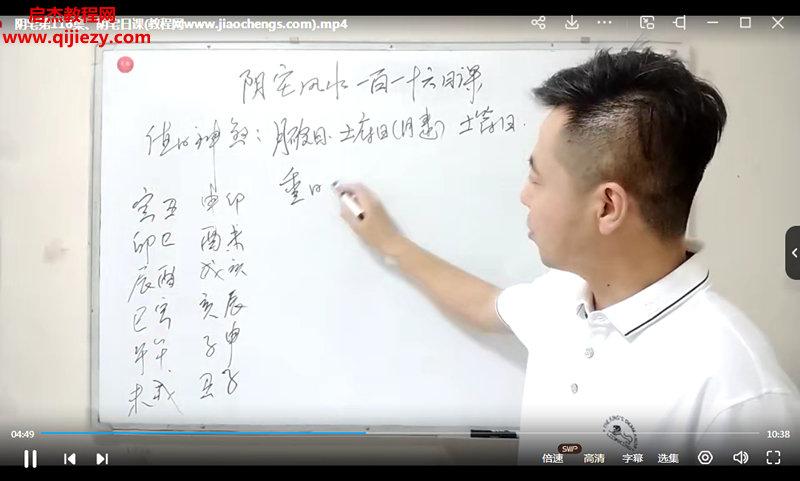 阴宅第116集、阴宅日课(教程网www.jiaochengs.com).mp4
启杰教程网
www.qijiezy.com
阴宅风水一百一十六日课
值日神煞：月破日、土府日(月建) 土符日.
重日
寅丑 申卯
卯巳 酉未
辰酉 戌亥
巳寅 亥辰
午午 子申
未戌 丑子
04:49
10:38
SVIP
倍速
高清
字幕
选集